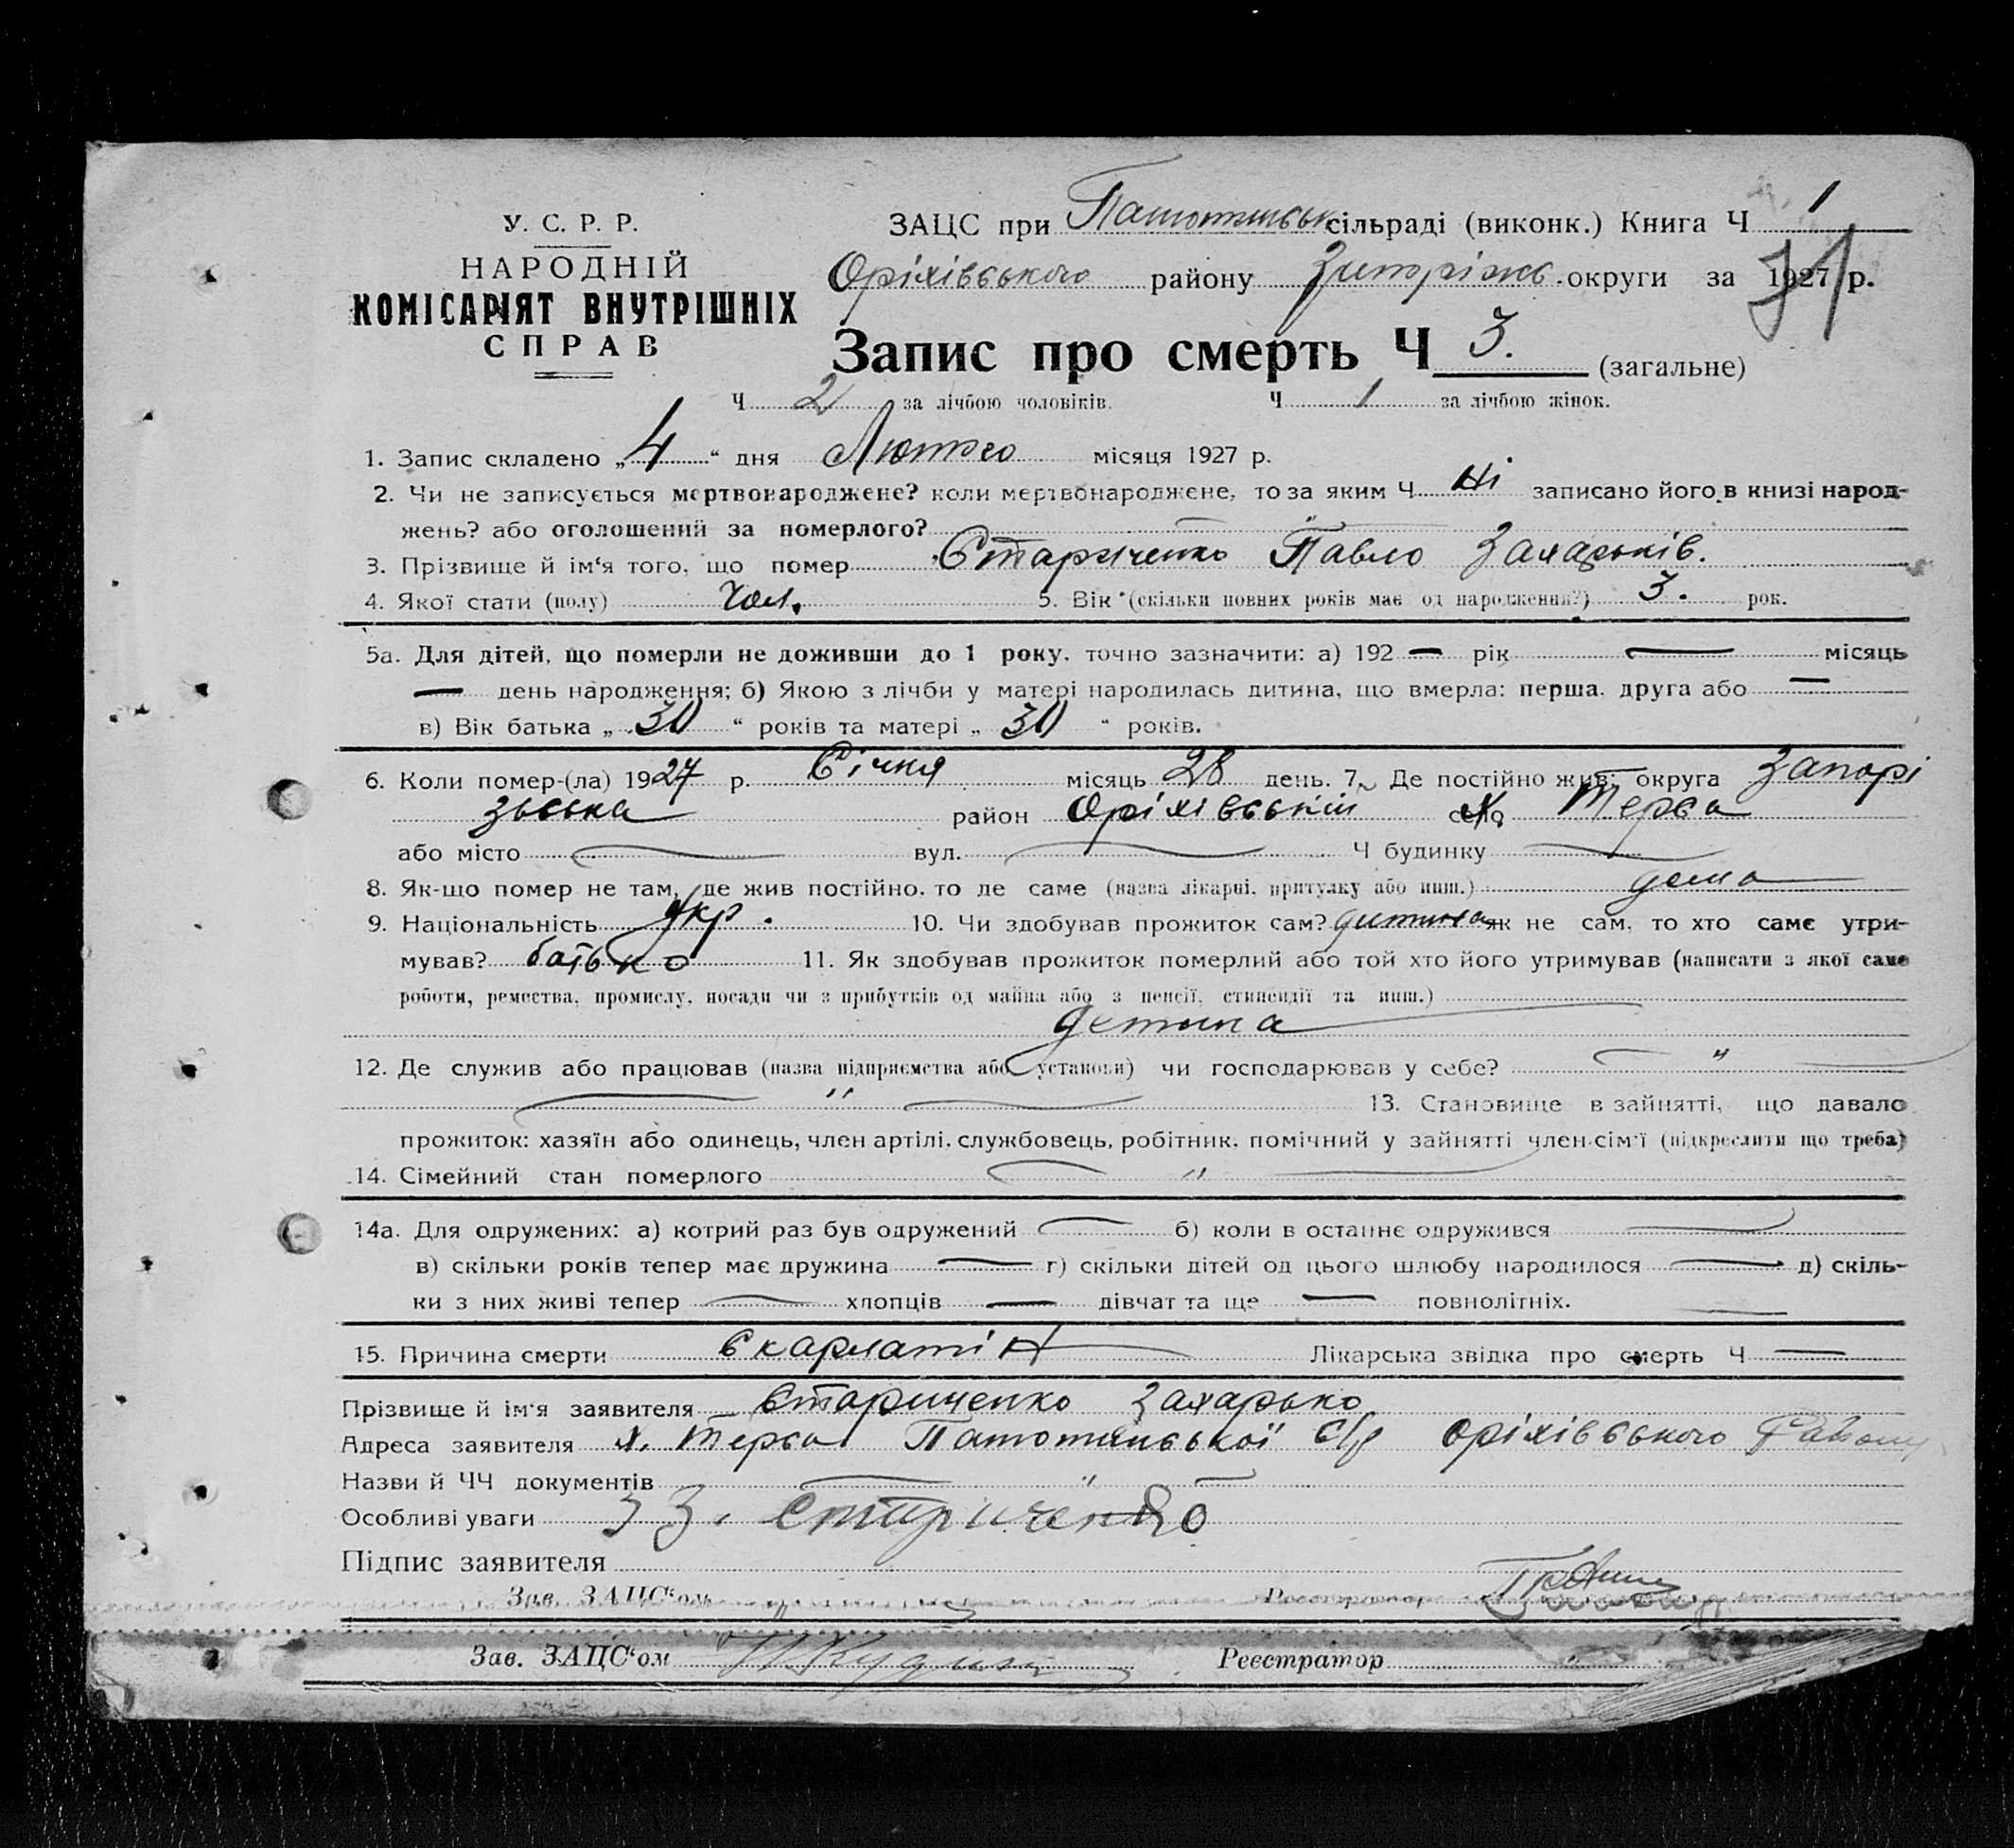 1
У. С. Р. Р. ЗАЦС при сільраді (виконк.) Книга Ч
НАРОДНІЙ Оріхівського району округи за 1927 р.
КОМІСАРІЯТ ВНУТРІШНІХ
СПРАВ
Запис про смерть Ч 3. (загальне)
Ч 2 за лічбою чоловіків. Ч 1 за лічбою жінок.
1. Запис складено „4“ дня Лютого місяця 1927 р.
2. Чи не записується мертвонароджене? коли мертвонароджене, то за яким Ч Ні записано його в книзі народ-
жень? або оголошений за померлого?
3. Прізвище й ім‘я того, що помер Стариченко Павло Захарьків.
4. Якої стати (полу) Чол. 5. Вік (скільки повних років має од народження?) 3. рок.
5а. Для дітей, що померли не доживши до 1 року, точно зазначити: а) 192 — рік — місяць
— день народження; б) Якою з лічби у матері народилась дитина, що вмерла: перша, друга або —
в) Вік батька „30“ років та матері „30“ років.
6. Коли помер-(ла) 1927 р. Січня місяць 28 день. 7. Де постійно жив: округа Запорі
зьська район Оріхівській село х. Терса
або місто — вул. — Ч будинку —
8. Як-що помер не там, де жив постійно, то де саме (назва лікарні, притулку або инш.) дома
9. Національність Укр. 10. Чи здобував прожиток сам? дитина як не сам, то хто саме утри-
мував? батько 11. Як здобував прожиток померлий або той хто його утримував (написати з якої саме
роботи, ремества, промислу, посади чи з прибутків од майна або з пенсії, стипендії та инш.)
детина
12. Де служив або працював (назва підприємства або установи) чи господарював у себе? — " —
— " — 13. Становище в зайнятті, що давало
прожиток: хазяїн або одинець, член артілі, службовець, робітник, помічний у зайнятті член-сім‘ї (підкреслити що треба)
14. Сімейний стан померлого — " —
14а. Для одружених: а) котрий раз був одружений — б) коли в останнє одружився —
в) скільки років тепер має дружина — г) скільки дітей од цього шлюбу народилося — д) скіль-
ки з них живі тепер — хлопців — дівчат та ще — повнолітніх.
15. Причина смерти Скарлатін Лікарська звідка про смерть Ч —
Прізвище й ім‘я заявителя Стариченко Захарько
Адреса заявителя х. Терса с/р Оріхівського Району
Назви й ЧЧ документів — " —
Особливі уваги З. Стариченко
Підпис заявителя
Зав. ЗАЦС‘ом Реєстратор
Зав. ЗАЦС‘ом Реєстратор